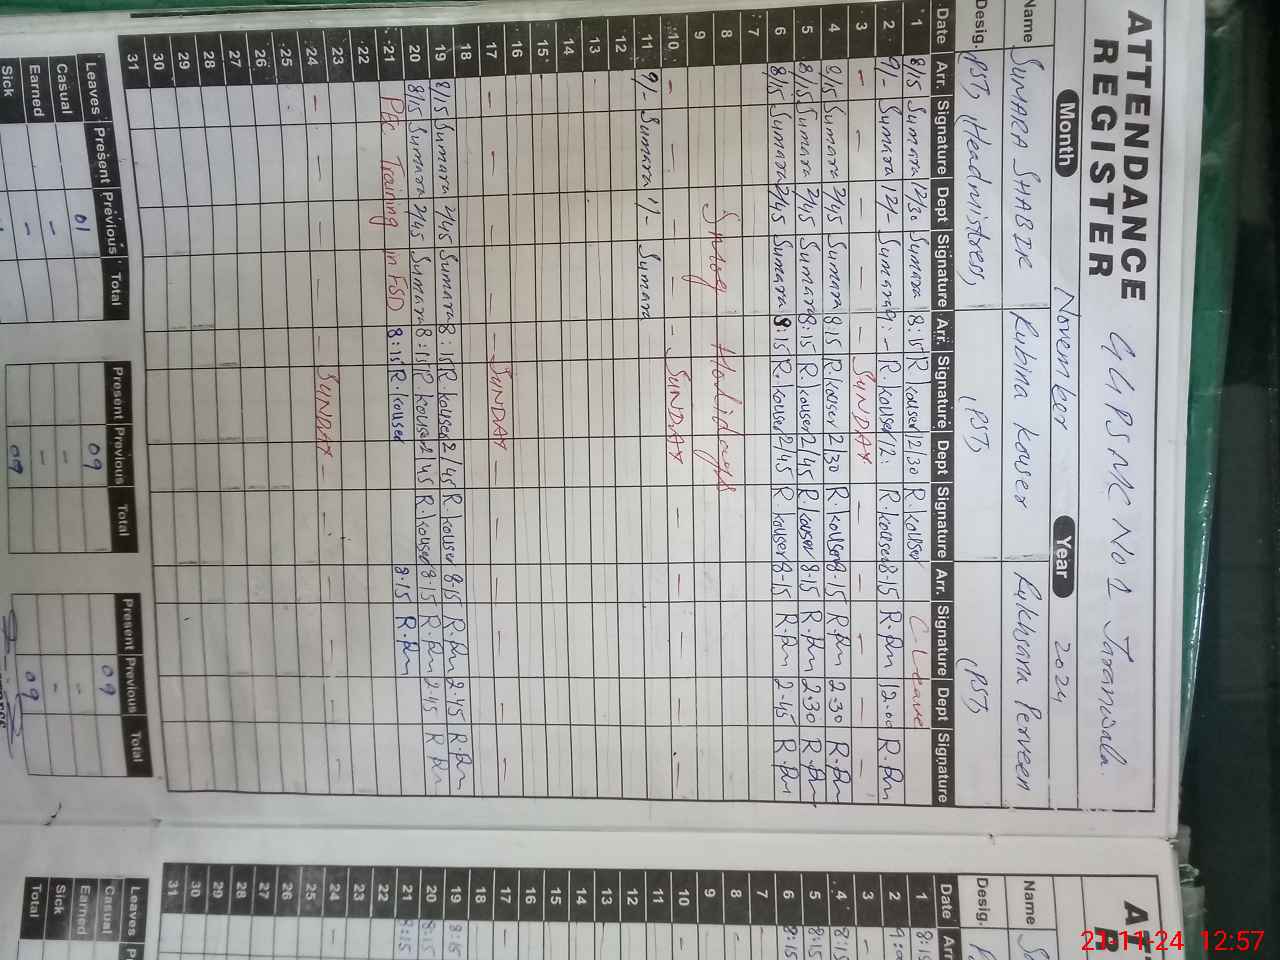 ATTENDANCE REGISTER
G G P S MC No 1 Jaranwala.
Month November Year 2024
Name SUMARA SHABIR Rubina Kouser Rukhsana Perveen
Desig. PST, (Headmistress) (PST) (PST)
Date Arr. Signature Dept Signature Arr. Signature Dept Signature Arr. Signature Dept Signature
1 8/15 Sumara 12/30 Sumara 8:15 R.kouser 12/30 R.kouser C-Leave
2 9/- Sumara 12/- Sumara 9:- R.kouser 12: R.kouser 8-15 12.00
3 - - - SUNDAY - - - -
4 8/15 Sumara Sumara 8:15 R.kouser 2/30 R.kouser 8-15 2-30
5 8/15 Sumara 2/45 Sumara 8:15 R.kouser 2/45 R.kouser 8-15 2-30
6 8/15 Sumara 2/45 Sumara 8:15 R.kouser 2/45 R.kouser 8-15 2-45
7
8 Smog Holidays
9
10 - - - - SUNDAY - - - -
11 9/- Sumara 1/- Sumara
12
13
14
15
16
17 - - - SUNDAY - - - -
18
19 8/15 Sumara 2/45 Sumara 8:15 R.kouser 2/45 R.kouser 8-15 2-45
20 8/15 Sumara 2/45 Sumara 8:15 R.kouser 2/45 R.kouser 8-15 2-45
21 Training in FSD 8:15 R.kouser 8-15
22
23
24 - - - - SUNDAY - - - -
25
26
27
28
29
30
31
Leaves Present Previous Total Present Previous Total Present Previous Total
Casual 01 09 09
Earned - - -
Sick 09 09
Name
Desig.
Date Arr
1 8:15
2
3 -
4 8:15
5 8:15
6 8:15
7
8
9
10 -
11
12
13
14
15
16
17 -
18
19 8:15
20 8:15
21 8:15
22
23
24 -
25
26
27
28
29
30
31
Leaves
Casual
Earned
Sick
Total
21-11-24 12:57